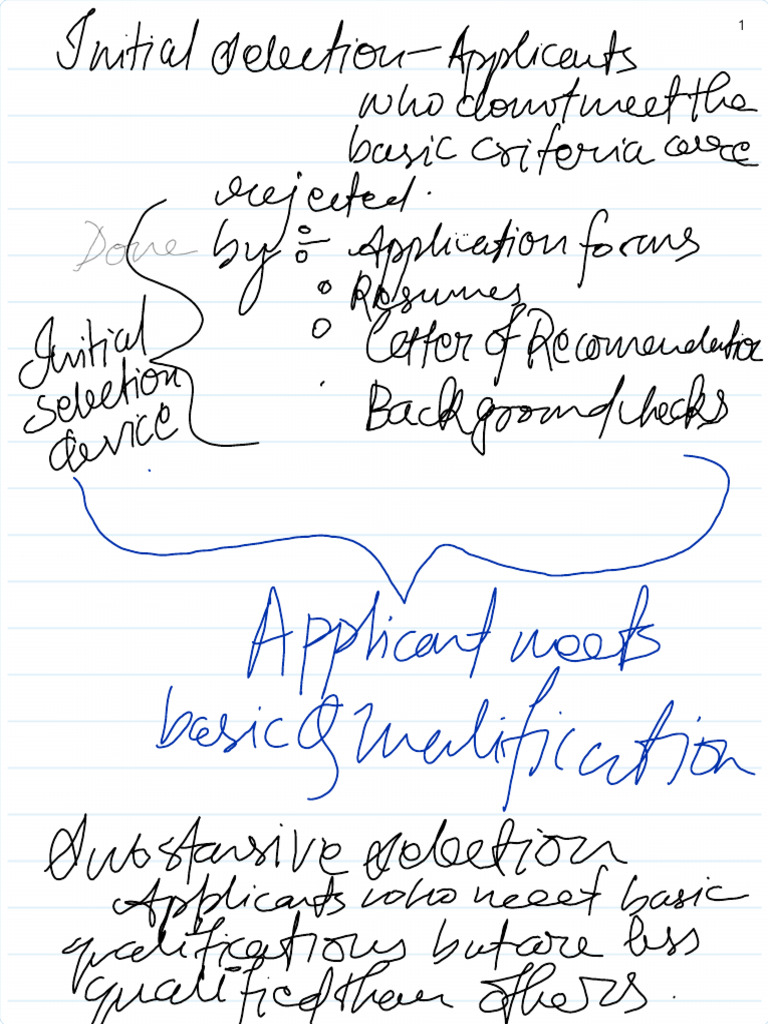 1
Initial selection - Applicants
who donot meet the
basic criteria are
rejected.
Done by :- Application forms
Resumes
Letter of Recomendation
Background checks
Initial
selection
device
Applicant meets
basic Qualification
Substansive selection
Applicants who meet basic
qualifications but are less
qualified than others.